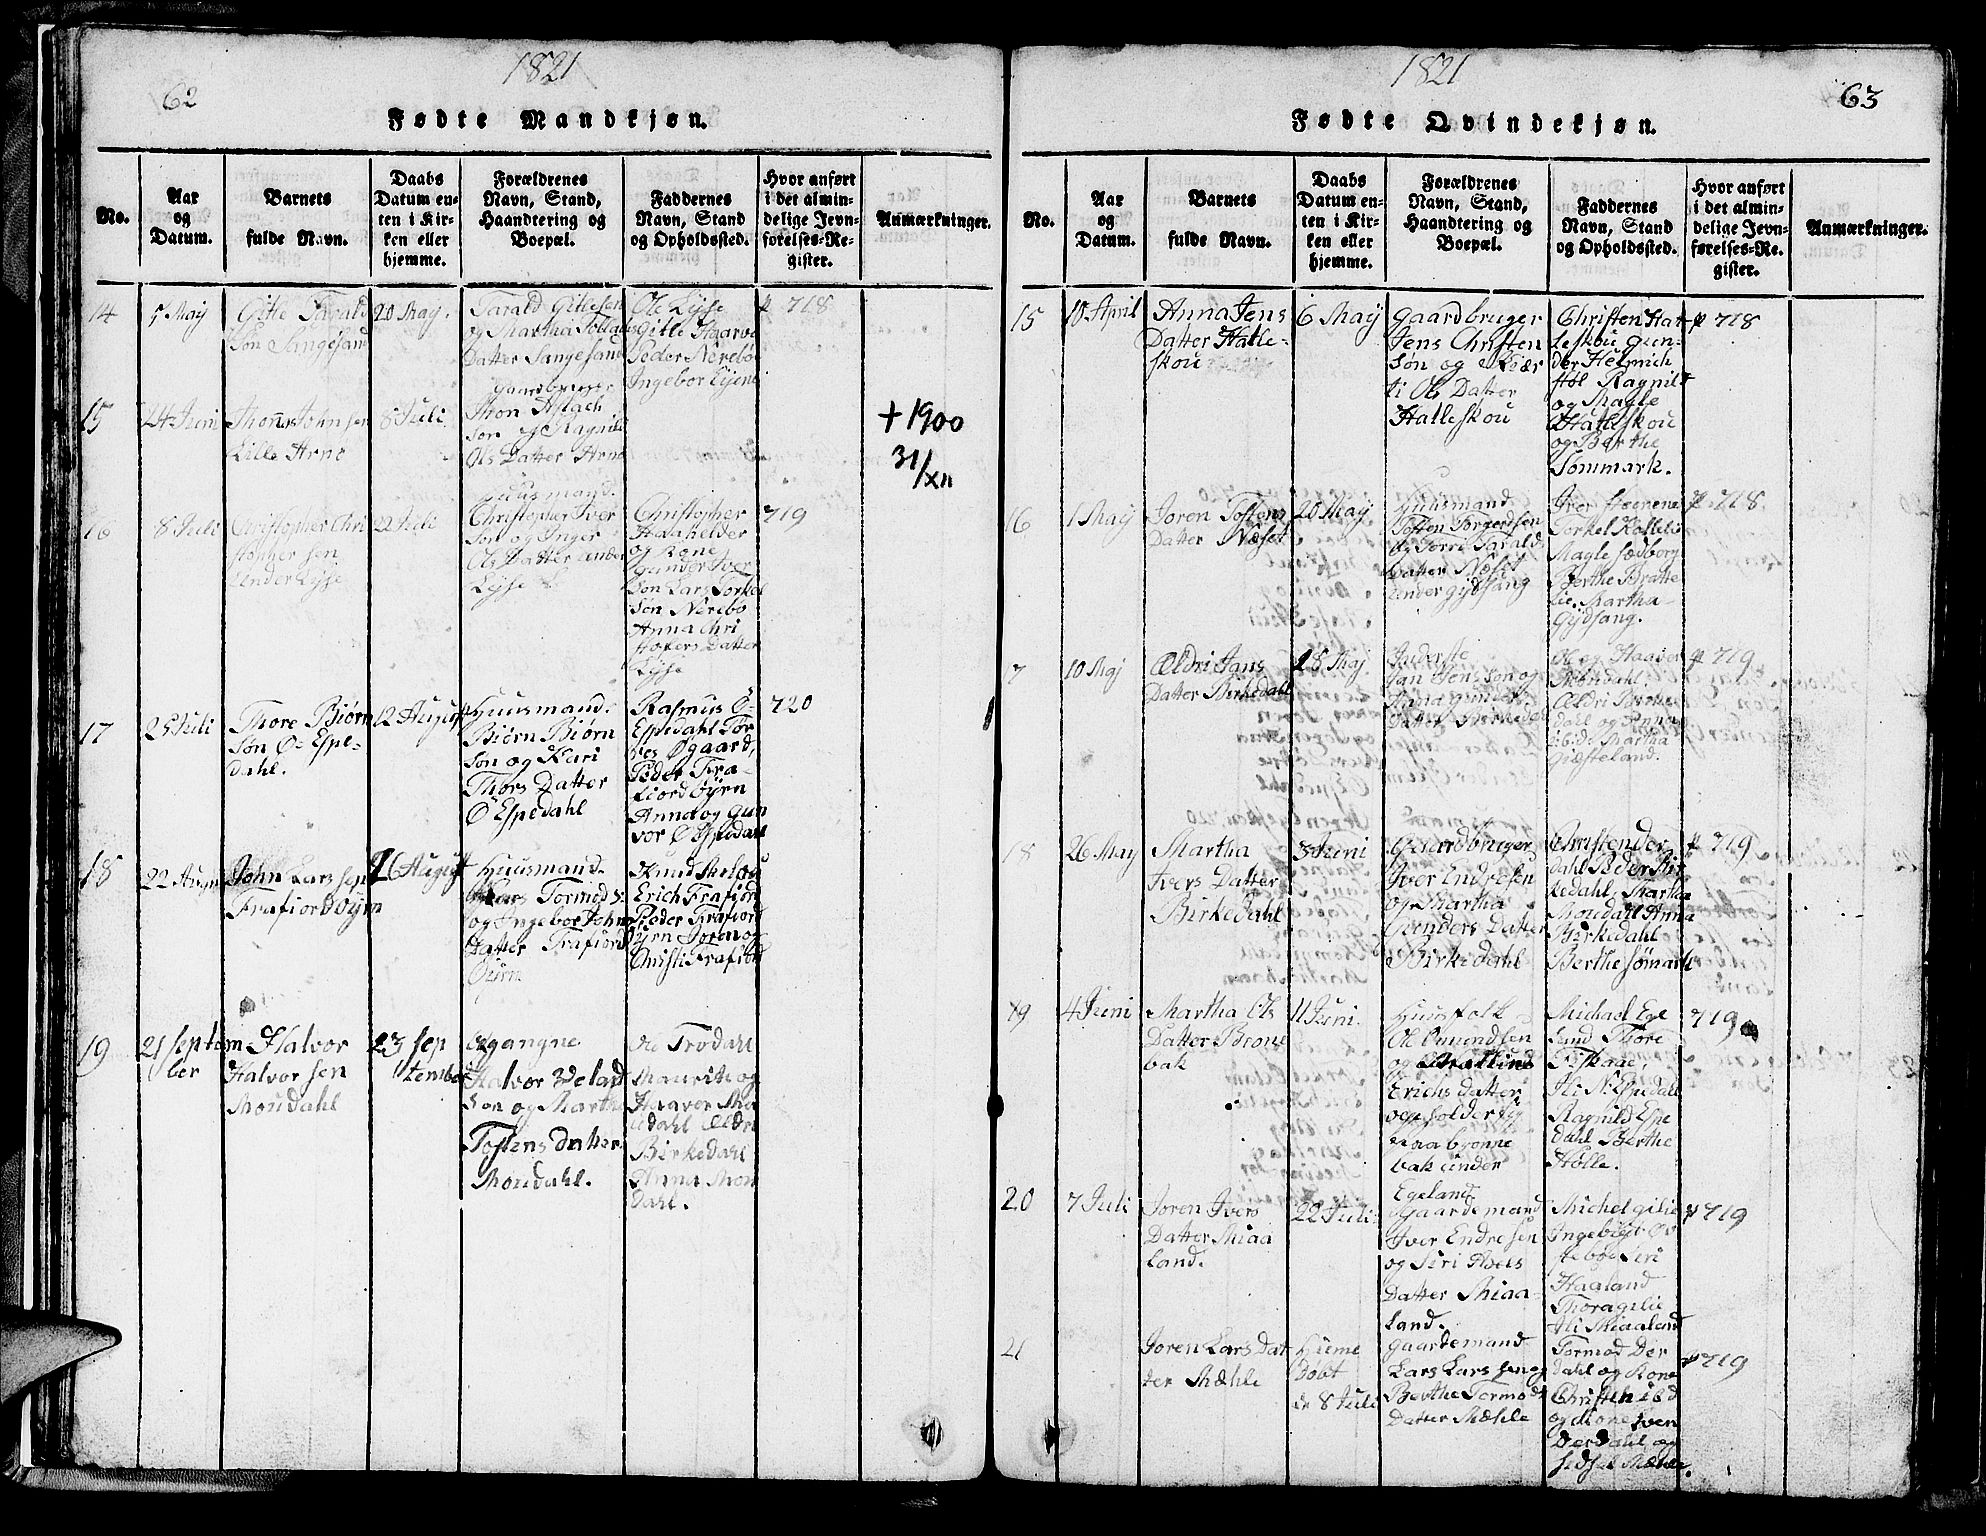 62
1821
Fødte Mandkjøn.
No.
Aar
og
Datum.
Barnets
fulde Navn.
Daabs
Datum en-
ten i Kir-
ken eller
hjemme.
Forældrenes
Navn, Stand,
Haandtering og
Boepæl.
Faddernes
Navn, Stand
og Opholdssted.
Hvor anført
i det almin-
delige Jevn-
førelses-Re-
gister.
Anmærkninger.
14
5 Maij
Gitle Tarald
Søn Sangesand
20 Maij.
Tarald Gitlesen
og Martha
Datter Sangesand
Gaardbruger
Ole Lyse
Gitle Haarvo
Peder Nerebø
Ingebor
p 718
15
24 Juni
Thonas Johnsen
Lille Arne
8 Juli
Jhon Aslach
søn og Ragnild
Ols Datter Arne
+ 1900
31/XII
16
8 Juli
Christopher Chri
stopher sen
under Lyse
22 Juli
Huusmand.
Christopher Iver
Søn og Inger
Ols Datter under
Lyse
Christopher
Haahelder
og Kone
Gunder Iver
Søn Lars Torkel
Søn Nerebø
Anna Chri
stofers Datter
Lyse
719
17
25 Juli
Thore Biørn
Søn Ø- Espe-
dahl.
12 August
Huusmand.
Biørn Biørn
søn og Kari
Thors Datter
Ø Espedahl
Rasmus Ø-
Espedahl Tor
Øgaard,
Peder Fra-
fiord Øyrn
Anna og Gun
vor Ø Espedahl
720
18
22 August
John Lars sen
Frafiord Øyrn
26 August
Huusmand.
Lars Tormods:
og Ingebor Johns
Datter Frafiord
Øyrn
Knud Mel og
Erich Frafiord
Peder Frafiord
Øyrn Joren og
Christi Frafiord
19
21 Septem
ber
Halvor
Halvor sen
Moudahl
23 Sep
tember
Halvor
Søn og Martha
Tostens Datter
Moudahl.
Ole Frødahl
Maurits og
Haavor Mo
udahl Eldri
Birkedahl
Anna Mou
dahl.
63
1821
Fødte Qvindekjøn.
No.
Aar
og
Datum.
Barnets
fulde Navn.
Daabs
Datum en-
ten i Kir-
ken eller
hjemme.
Forældrenes
Navn, Stand,
Haandtering og
Boepæl.
Faddernes
Navn, Stand
og Opholdssted.
Hvor anført
i det almin-
delige Jevn-
førelses-Re-
gister.
Anmærkninger.
15
18 April
Anna Jens
Datter Halle-
skou
6 Maij
Gaardbruger
Jens Christen
Søn og Kier
ti Ols Datter
Halleskou
Christen Hal-
leskou Gun-
der Helmich
støl Ragnil
og Magle
Halleskou
og Berthe
Sømmark.
p 718
16
1 Maij
Joren Tostens
Datter Neset
20 Maij
Huusmand
Tosten Torgersen
og Torri Tarald
Datter Neset
under Gydsang
Iver
Torkel Kolleli
Magle Sedberg
Berthe Bratte
lie. Martha
Gydsang.
p. 718.
7
10 Maj
Ældri Jans
Datter Birkedahl
28 Maj
Inderste
Jan Jens søn og
Anna Gunders
Datter Birkedal
Ole og Haavor
Ældri Birke
dahl og Anna
ibid. Martha
Giæsteland.
p 719
18
26 Maij
Martha
Ivers Datter
Birkedahl
3 Juni
Gaardbruger
Iver Endresen
og Martha
Gunders Datter
Birkedahl
Christen der
dahl Peder Bir
kedahl, Martha
Moudahl Anna
Birkedahl
Berthe Sømark
p 719
19
4 Juni
Martha Ols
Datter Brone
bak
11 Juni.
Huusfolk
Ole Omundsen
og
Erichs datter
opholder sig
paa bronne
bak under
Egeland.
Michael Ege
land Thore
Eskaae,
Eli N. Espedahl
Ragnild Espe
dahl Berthe
Hølle.
719
20
7 Juli
Joren Ivers
Datter Miaa
land.
22 Juli
Gaardemand
Iver Endresen
og Siri Axels
Datter Miaa-
land.
Michel Gilie
Ingebor
Siri
Haaland
Thora Gilie
Eli Miaaland
p 719
21
Joren Lars Dat
ter Mæhle
Hieme
Døbt
d. 8 Juli
Gaardemand
Lars Lars sen og
Berthe Tormods
Datter Mæhle
Tormod Der
dahl og Kone
Christen ibd
og Kone Sven
Derdahl og
Sidsel Mæhle.
p 719